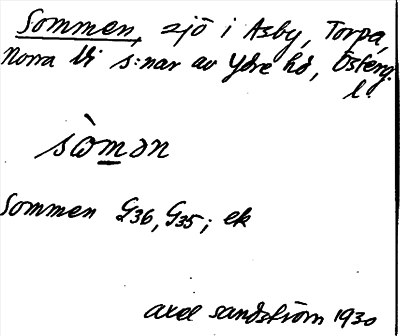 Sommen, sjö i Asby, Torpa,
Norra Vi s:nar av Ydre hd, Österg.
l.
sòmən
Sommen G36, G35; ek
Axel Sandström 1930